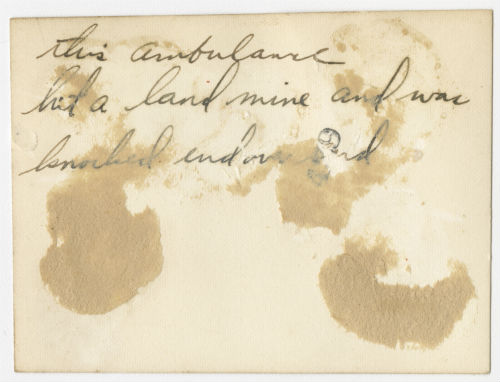 this ambulance
hit a land mine and was
knocked end over end